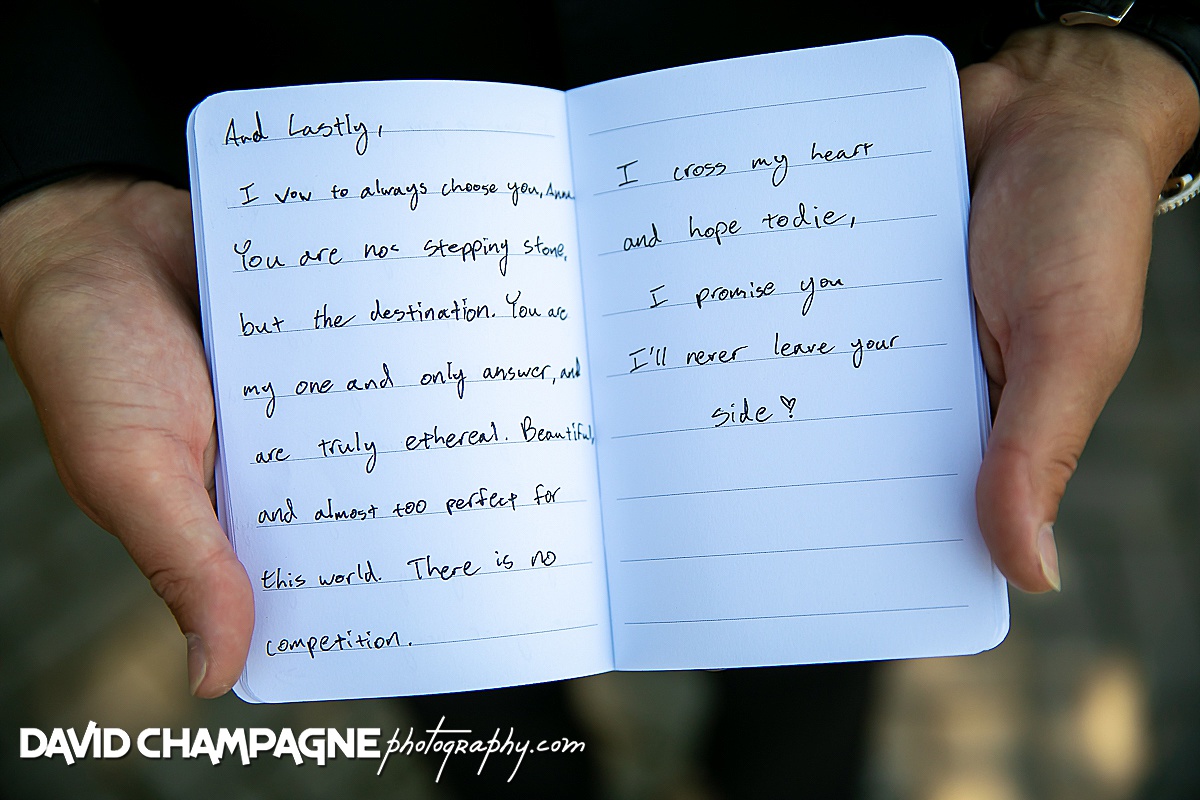 And Lastly,
I vow to always choose you, Anna
You are no stepping stone,
but the destination. You are
my one and only answer, and
are truly ethereal. Beautiful,
and almost too perfect for
this world. There is no
competition.
I cross my heart
and hope to die,
I promise you
I'll never leave your
side
DAVID CHAMPAGNE photography.com